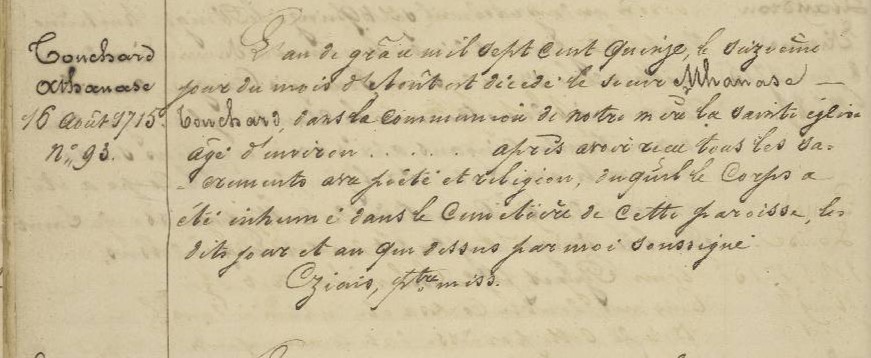 Touchard
Athanase
16 Août 1715.
No 93.
L'an de grâce mil sept cent quinze, le seizième
jour du mois d'Août est décédé le sieur Athanase —
Touchard, dans la Communion de notre mère la sainte église
âgé d'environ . . . . . . après avoir reçu tous les sa-
-crements avec piété et religion, duquel le Corps a
été inhumé dans le Cimetière de cette paroisse, les
dits jour et an que dessus par moi soussigné
ptre miss.